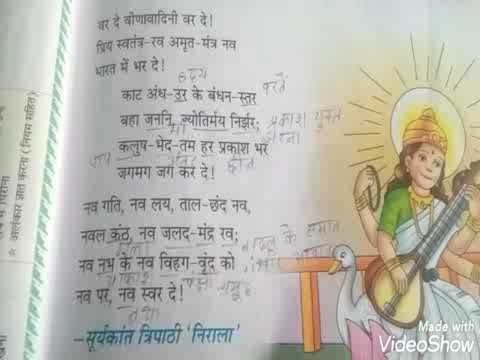 वर दे वीणावादिनी वर दे!
प्रिय स्वतंत्र-रव अमृत-मंत्र नव
भारत में भर दे!
हृदय
काट अंध-उर के बंधन-स्तर
बहा जननि, ज्योतिर्मय निर्झर;
प्रकाश युक्त
माँ
झरना
कलुष-भेद-तम हर प्रकाश भर
जगमग जग कर दे!
नव गति, नव लय, ताल-छंद नव,
नवल कंठ, नव जलद-मंद्र रव;
के समान
नव नभ के नव विहग-वृंद को
नव पर, नव स्वर दे!
—सूर्यकांत त्रिपाठी 'निराला'
* अलंकार ज्ञात करना (नियम सहित)
Made with
VideoShow